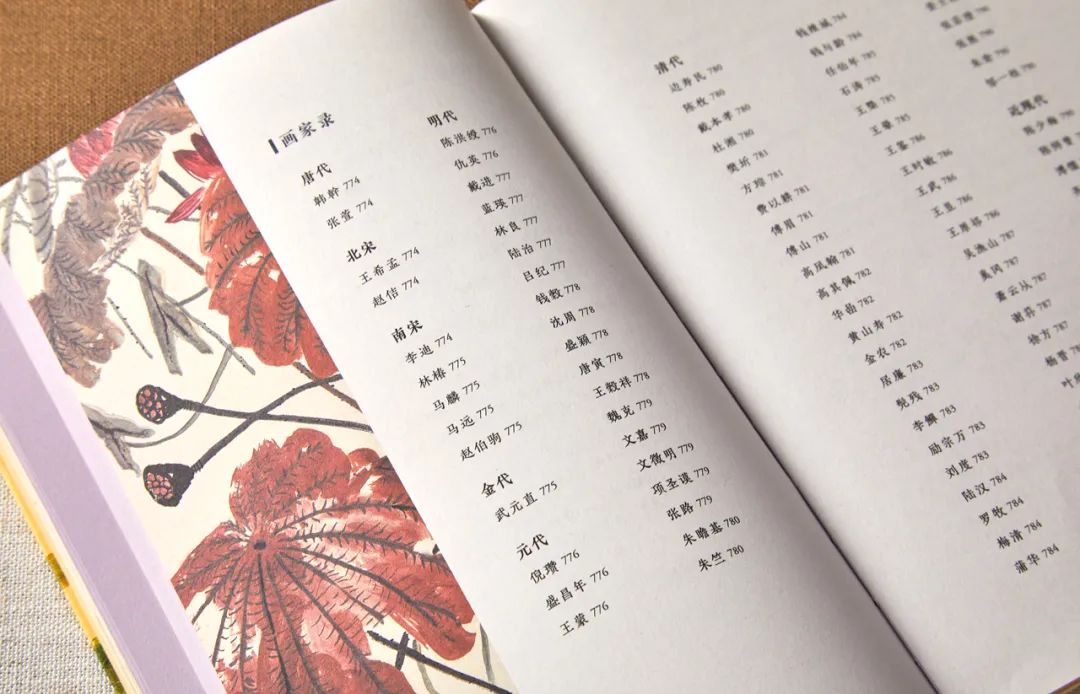 画家录
唐代
韩幹 774
张萱 774
北宋
王希孟 774
赵佶 774
南宋
李迪 774
林椿 775
马麟 775
马远 775
赵伯驹 775
金代
武元直 775
元代
倪瓒 776
盛昌年 776
王蒙 776
明代
陈洪绶 776
仇英 776
戴进 777
蓝瑛 777
林良 777
陆治 777
吕纪 777
钱榖 778
沈周 778
盛颖 778
唐寅 778
王榖祥 778
魏克 779
文嘉 779
文徵明 779
项圣谟 779
张路 779
朱瞻基 780
朱竺 780
清代
边寿民 780
陈枚 780
戴本孝 780
杜湘 780
樊圻 781
方琮 781
费以耕 781
傅眉 781
傅山 781
高凤翰 781
高其佩 782
华嵒 782
黄山寿 782
金农 782
居廉 783
髡残 783
李鱓 783
励宗万 783
刘度 783
陆汉 784
罗牧 784
梅清 784
蒲华 784
钱维城 784
钱与龄 784
任伯年 785
石涛 785
王概 785
王翚 785
王鉴 786
王时敏 786
王武 786
王昱 786
王原祁 786
吴渔山 787
奚冈 787
萧云从 787
谢荪 787
徐方 787
杨晋
邹一桂 790
近现代